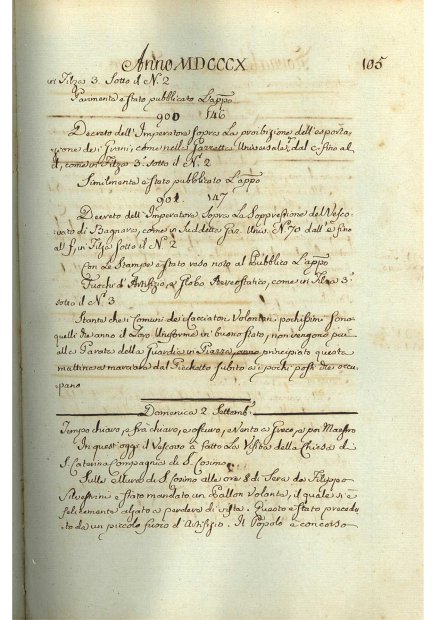 Anno MDCCCX 105
in Filza 3. Sotto il N. 2
Parimente è stato pubblicato L'appo
900 146
Decreto dell'Imperatore Sopra La proibizione dell'esporta-
zione dei Grani, come nella Gazzetta Universale, dal C. fino al
d, come in Filza 3. sotto il N. 2
Similmente è stato pubblicato L'appo
901 147
Decreto dell'Imperatore Sopra La Soppressione del Vesco-
vato di Bagnara, come in Suddetta Gaz. Univ. N. 70 dall' e fino
all f, in Filza Sotto il N. 2
Con Le Stampe è stato reso noto al Pubblico L'appo
Fuochi d'Artifizio, e Globo Aereostatico, come in Filza 3.
sotto il N. 3
Stante che i Comuni dei Cacciatori Volontari pochissimi sono
quelli che anno il Loro Uniforme in buono stato, non vengono più
alla Parata della Guardia in Piazza, principiato questa
mattina a marciare dal Picchetto subito a i pochi posti che occu-
pano
Domenica 2 Settemb.
Tempo chiaro, e fra chiaro, e oscuro, e Vento a Greco, e poi Maestro
In quest'oggi il Vescovo à fatto La Visita della Chiesa di
S. Caterina Compagnia di S. Cosimo
Sulle Mura di S. Cosimo alle ore 8 di Sera da Filippo
Silvestrini è stato mandato un Pallon Volante, il quale si è
felicemente alzato a perdersi di vista. Questo è stato precedu-
to da un piccolo fuoco d'Artifizio. Il Popolo è concorso